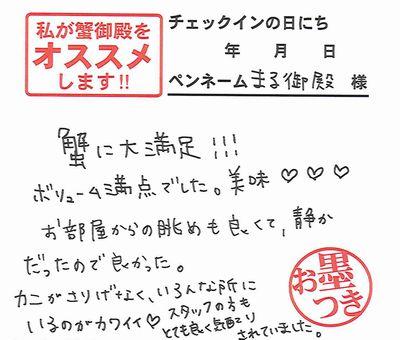 私が蟹御殿を
オススメ
します!!
チェックインの日にち
年 月 日
ペンネーム まる御殿 様
蟹に大満足!!!
ボリューム満点でした。美味♡♡♡
お部屋からの眺めも良くて、静か
だったので良かった。
カニがさりげなく、いろんな所に
いるのがカワイイ♡ スタッフの方も
とても良く気配り
されていました。
お墨つき